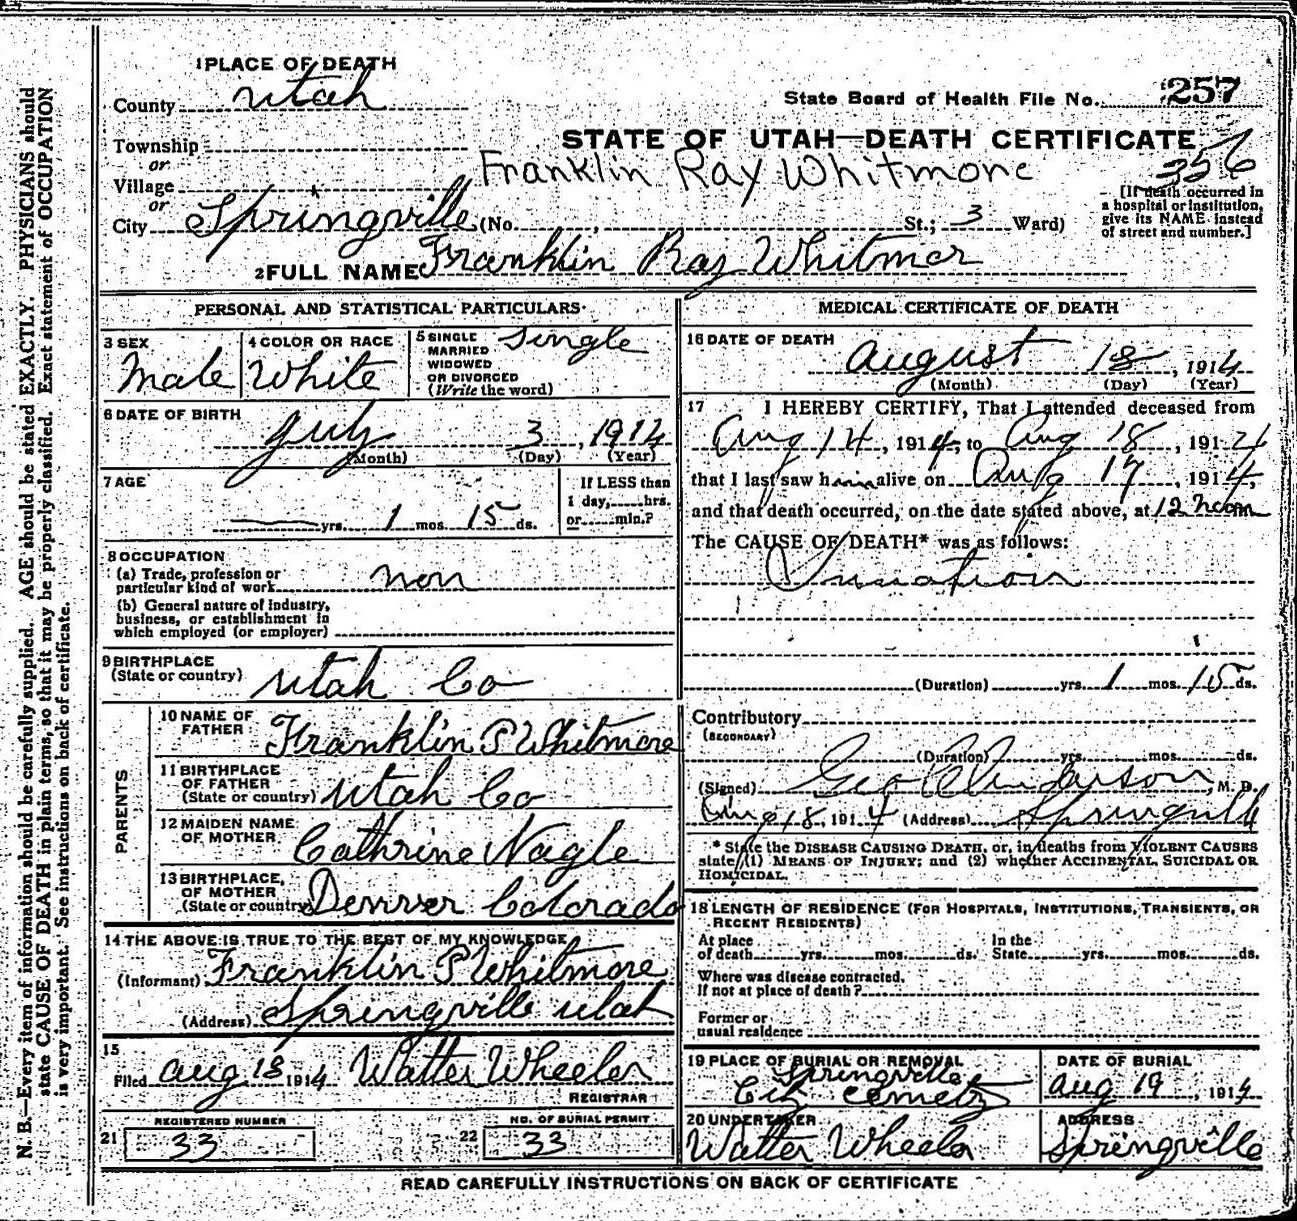 1 PLACE OF DEATH
County Utah
State Board of Health File No. 257
STATE OF UTAH—DEATH CERTIFICATE
356
Township
or
Village
Franklin Ray Whitmore
or
City Springville (No. , St.; 3 Ward)
[If death occurred in
a hospital or institution,
give its NAME instead
of street and number.]
2 FULL NAME Franklin Ray Whitmor
PERSONAL AND STATISTICAL PARTICULARS
3 SEX
Male
4 COLOR OR RACE
White
5 SINGLE
MARRIED
WIDOWED
OR DIVORCED
(Write the word)
Single
6 DATE OF BIRTH
July 3, 1914
(Month) (Day) (Year)
7 AGE
yrs. 1 mos. 15 ds.
If LESS than
1 day, hrs.
or min.?
8 OCCUPATION
(a) Trade, profession or
particular kind of work non
(b) General nature of industry,
business, or establishment in
which employed (or employer)
9 BIRTHPLACE
(State or country) Utah Co
PARENTS
10 NAME OF
FATHER Franklin P Whitmore
11 BIRTHPLACE
OF FATHER
(State or country) Utah Co
12 MAIDEN NAME
OF MOTHER Cathrine Nagle
13 BIRTHPLACE
OF MOTHER
(State or country) Denver Colorado
14 THE ABOVE IS TRUE TO THE BEST OF MY KNOWLEDGE
(Informant) Franklin P Whitmore
(Address) Springville Utah
15
Filed Aug 18 1914 Walter Wheeler
REGISTRAR
REGISTERED NUMBER
21 33
NO. OF BURIAL PERMIT
22 33
MEDICAL CERTIFICATE OF DEATH
16 DATE OF DEATH
August 18, 1914
(Month) (Day) (Year)
17 I HEREBY CERTIFY, That I attended deceased from
Aug 14, 1914, to Aug 18, 1914
that I last saw him alive on Aug 17, 1914,
and that death occurred, on the date stated above, at 12 noon
The CAUSE OF DEATH* was as follows:
(Duration) yrs. 1 mos. 15 ds.
Contributory
(SECONDARY)
(Duration) yrs. mos. ds.
(Signed) Geo Anderson, M. D.
Aug 18, 1914 (Address) Springville
* State the DISEASE CAUSING DEATH, or, in deaths from VIOLENT CAUSES
state (1) MEANS OF INJURY; and (2) whether ACCIDENTAL, SUICIDAL OR
HOMICIDAL.
18 LENGTH OF RESIDENCE (FOR HOSPITALS, INSTITUTIONS, TRANSIENTS, OR
RECENT RESIDENTS)
At place
of death yrs. mos. ds.
In the
State yrs. mos. ds.
Where was disease contracted,
If not at place of death?
Former or
usual residence
19 PLACE OF BURIAL OR REMOVAL
Springville
City Cemetry
DATE OF BURIAL
Aug 19, 1914
20 UNDERTAKER
Walter Wheeler
ADDRESS
Springville
READ CAREFULLY INSTRUCTIONS ON BACK OF CERTIFICATE
N. B.—Every item of information should be carefully supplied. AGE should be stated EXACTLY. PHYSICIANS should
state CAUSE OF DEATH in plain terms, so that it may be properly classified. Exact statement of OCCUPATION
is very important. See instructions on back of certificate.